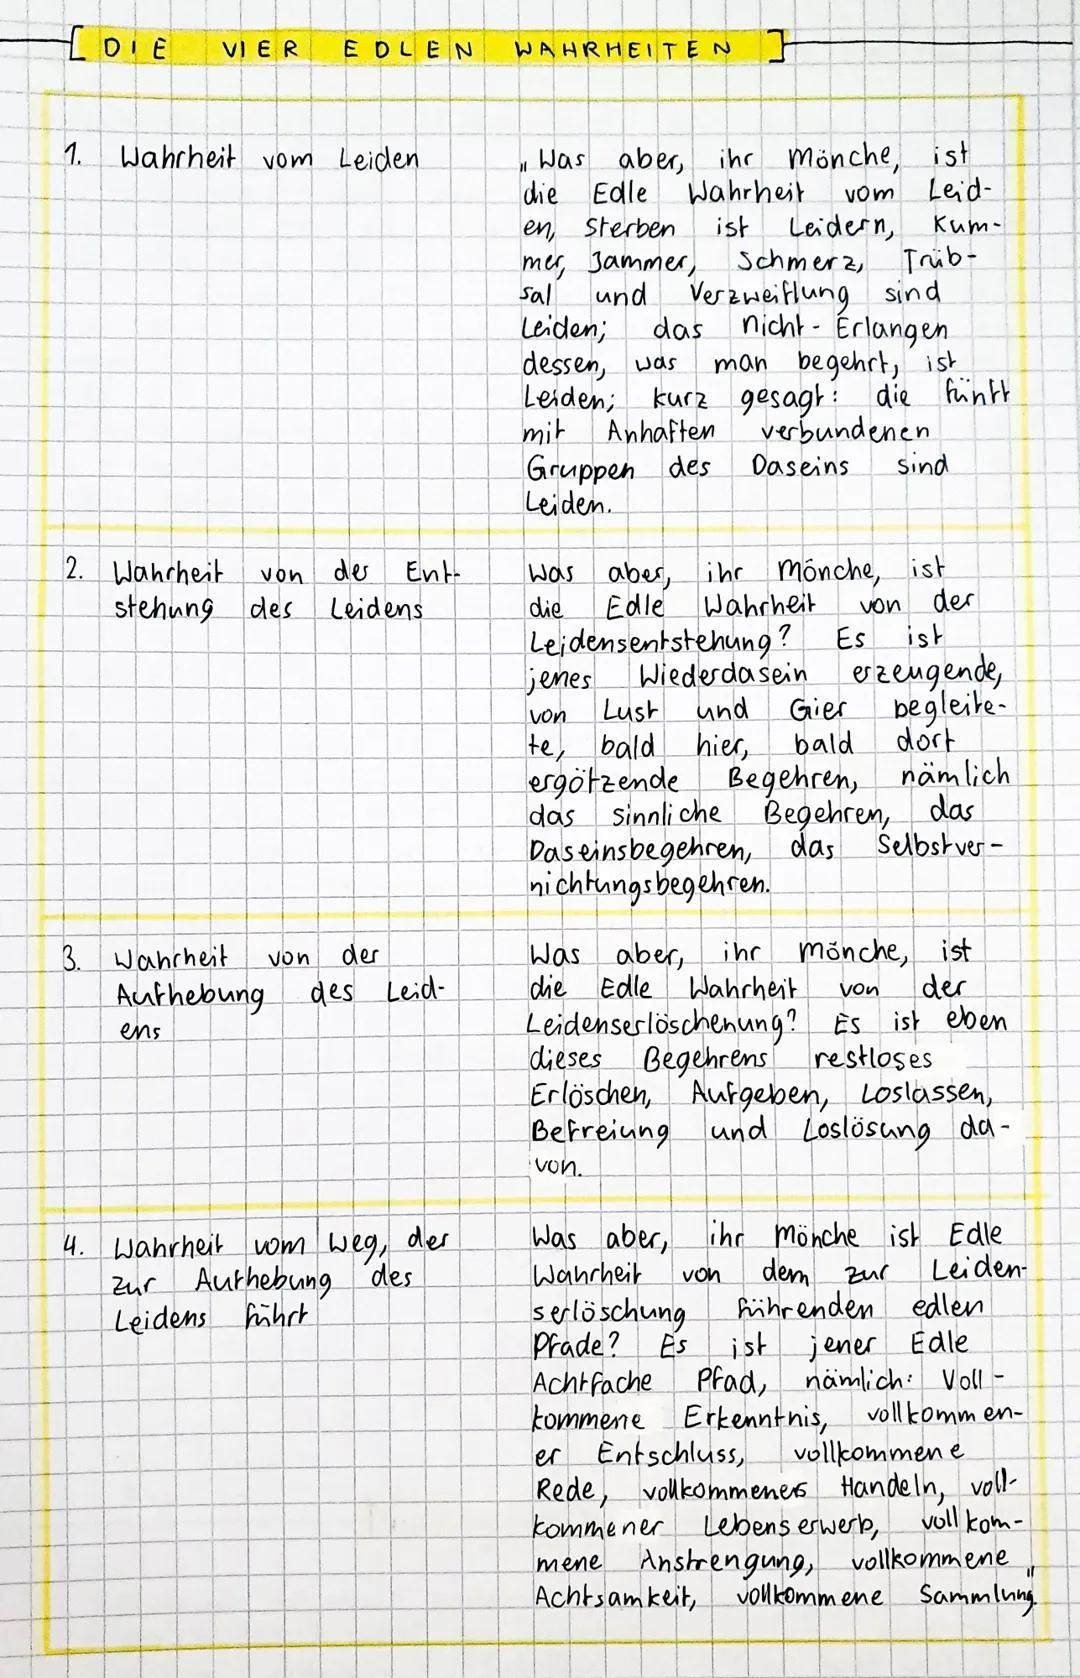 DIE VIER EDLEN WAHRHEITEN
1. Wahrheit vom Leiden
„Was aber, ihr Mönche, ist
die Edle Wahrheit vom Leid-
en, Sterben ist Leidern, Kum-
mer, Jammer, Schmerz, Trüb-
sal und Verzweiflung sind
Leiden; das nicht-Erlangen
dessen, was man begehrt, ist
Leiden; kurz gesagt: die fünft
mit Anhaften verbundenen
Gruppen des Daseins sind
Leiden.
2. Wahrheit von der Ent-
stehung des Leidens
Was aber, ihr Mönche, ist
die Edle Wahrheit von der
Leidensentstehung? Es ist
jenes Wiederdasein erzeugende,
von Lust und Gier begleite-
te, bald hier, bald dort
ergötzende Begehren, nämlich
das sinnliche Begehren, das
Daseinsbegehren, das Selbstver-
nichtungsbegehren.
3. Wahrheit von der
Aufhebung des Leid-
ens
Was aber, ihr Mönche, ist
die Edle Wahrheit von der
Leidenserlöschenung? Es ist eben
dieses Begehrens restloses
Erlöschen, Aufgeben, Loslassen,
Befreiung und Loslösung da-
von.
4. Wahrheit vom Weg, der
zur Aufhebung des
Leidens führt
Was aber, ihr Mönche ist Edle
Wahrheit von dem zur Leiden-
serlöschung führenden edlen
Pfade? Es ist jener Edle
Achtfache Pfad, nämlich: Voll-
kommene Erkenntnis, vollkommen-
er Entschluss, vollkommene
Rede, vollkommenes Handeln, voll-
kommener Lebenserwerb, vollkom-
mene Anstrengung, vollkommene
Achtsamkeit, vollkommene Sammlung."